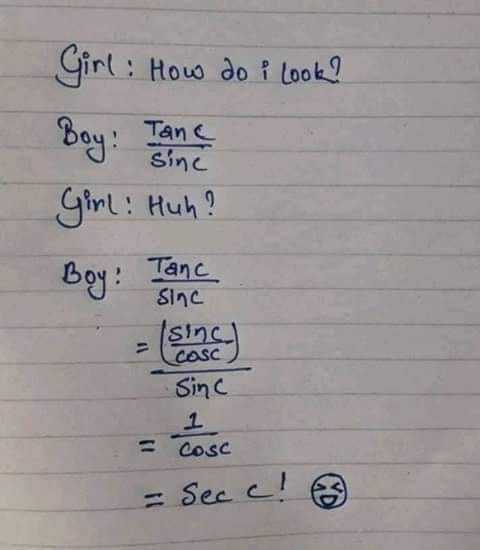 Girl: How do i look?
Boy: Tan c
sin c
Girl: Huh?
Boy: Tan c
sin c
= (sin c
cos c)
sin c
= 1
cos c
= Sec c! 😆